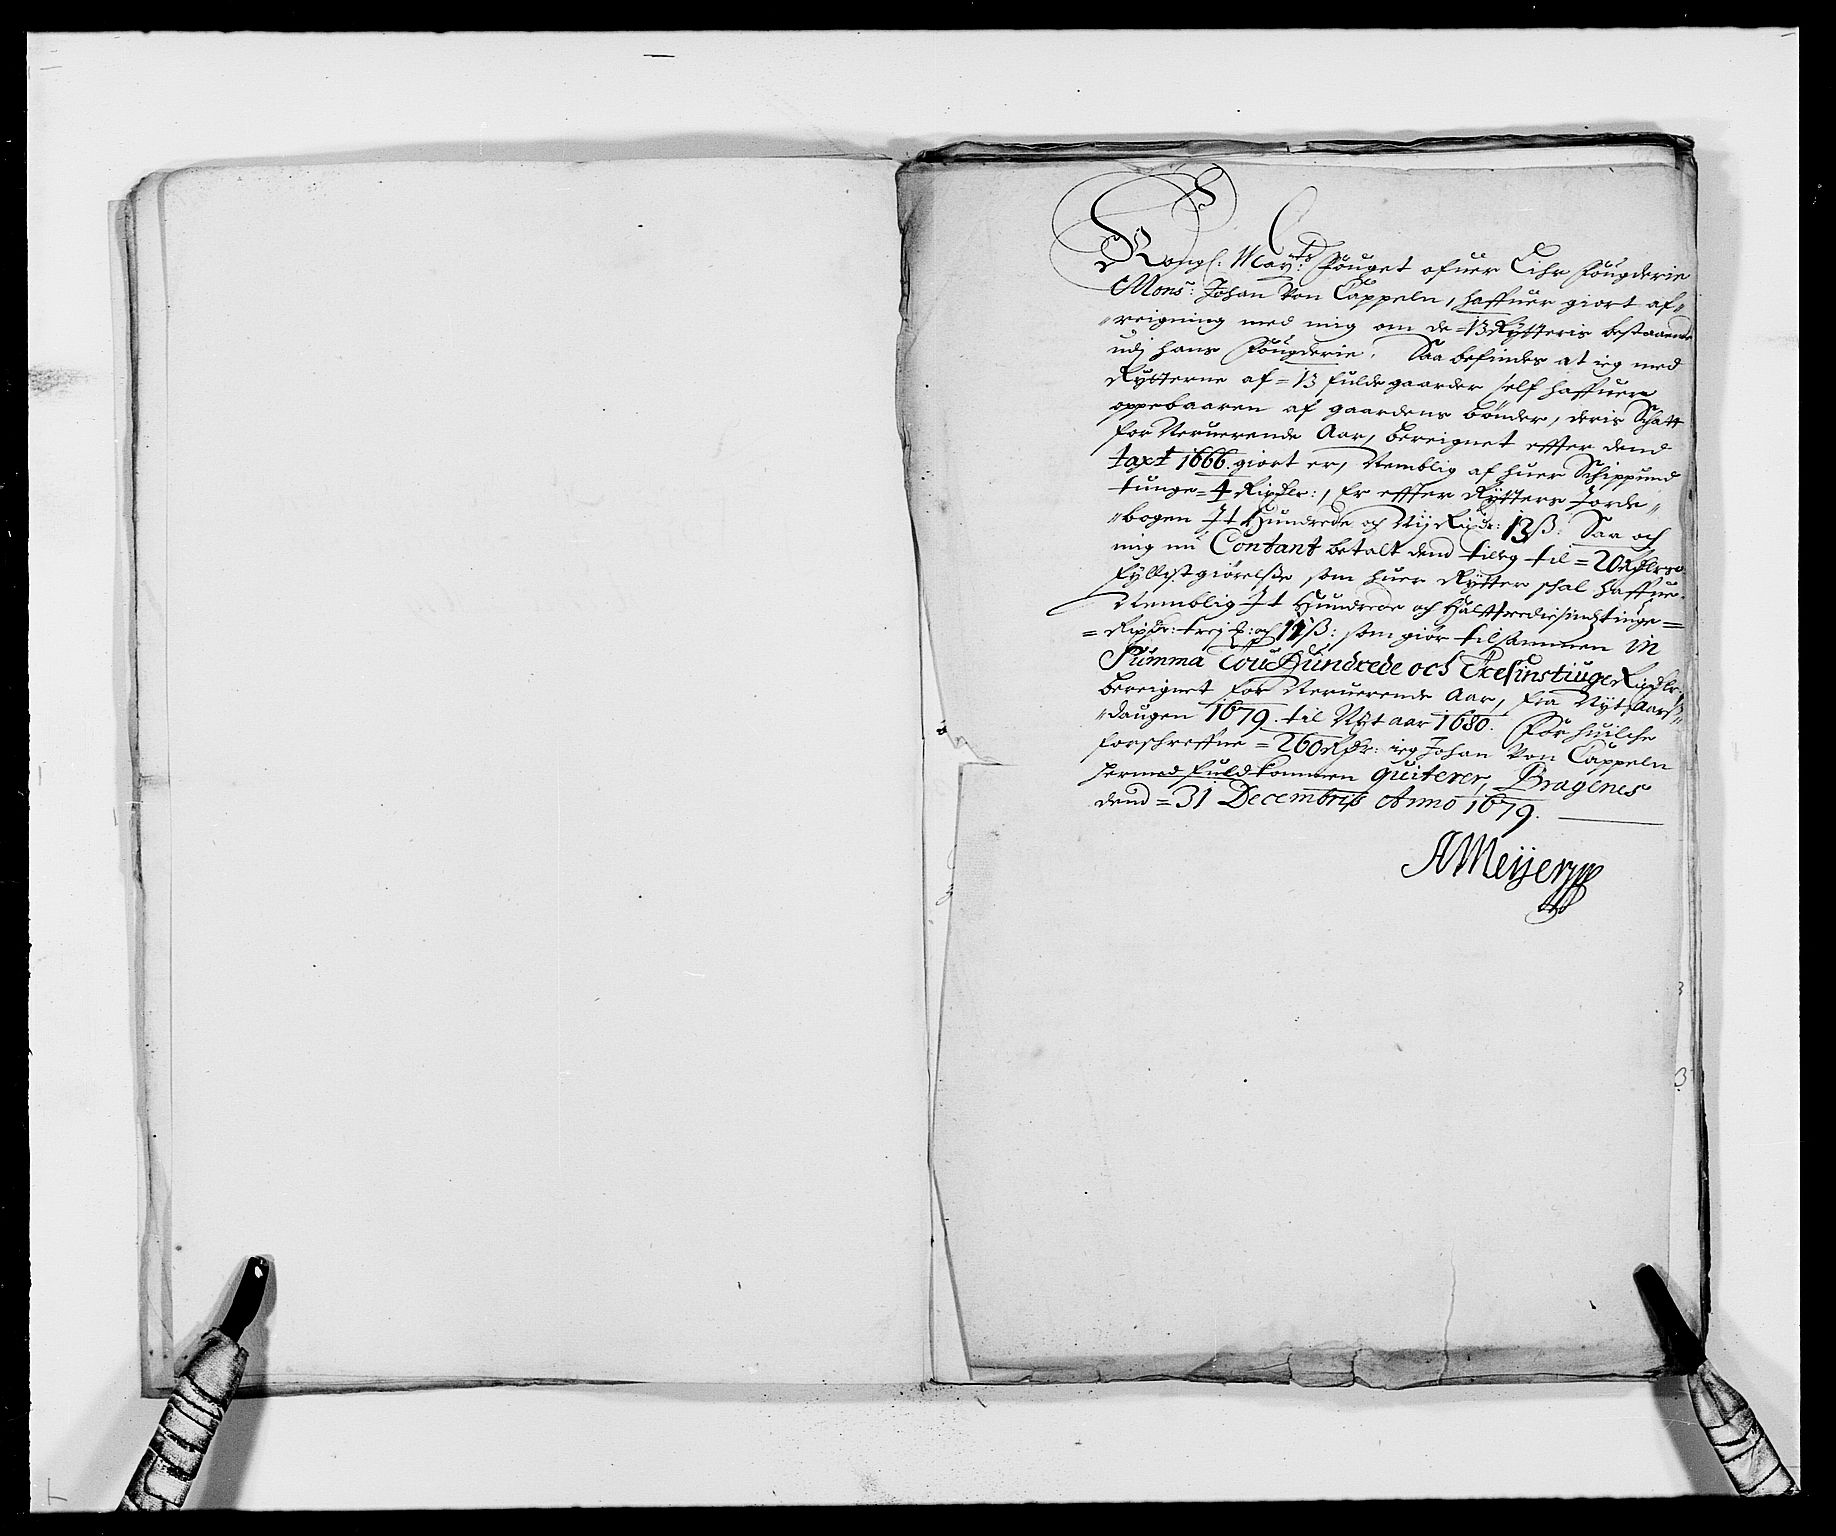 Kongl: May:ts Fouget ofuer Eihr Fougderie
Mons:r Johan Von Cappeln, haffuer giort af„
„reigning med mig om de =13 Rÿtteris bestaaende
udj hans Fougderie. Saa befindes at ieg med
Rytterne af =13 fulde gaarder self haffuer
oppebaaren af gaardens bønder, deris Schatt
for Neruerende Aar, bereignet effter dend
taxt 1666. giort er, Nemblig af huer Schippund
tunge =4 Rixdlr:, Er effter Rÿtters Jorde„
„bogen It Hundrede och Nÿ Rixdr: 13ß: Saa och
mig nu Contant betalt dend tileg til =20 Rdlrs
fyllistgiørelße som huer Rytter schal haffue.
Nemblig It Hundrede och Halfftrediesindztiuge=
=Rixdr: trej : och 11ß: som giør tilsammen in
Summa Tou Hundrede och Tresinstiuge Rixdlr
bereignet for Neruerende Aar, fra Nyt Aarß„
„daugen 1679. til Nyt aar 1680. For huilche
forschreffne =260 Rdr: ieg Johan Von Cappeln
hermed fuldkommen quiterer, Bragenes
dend =31 Decembriß Anno 1679.
AMeijer